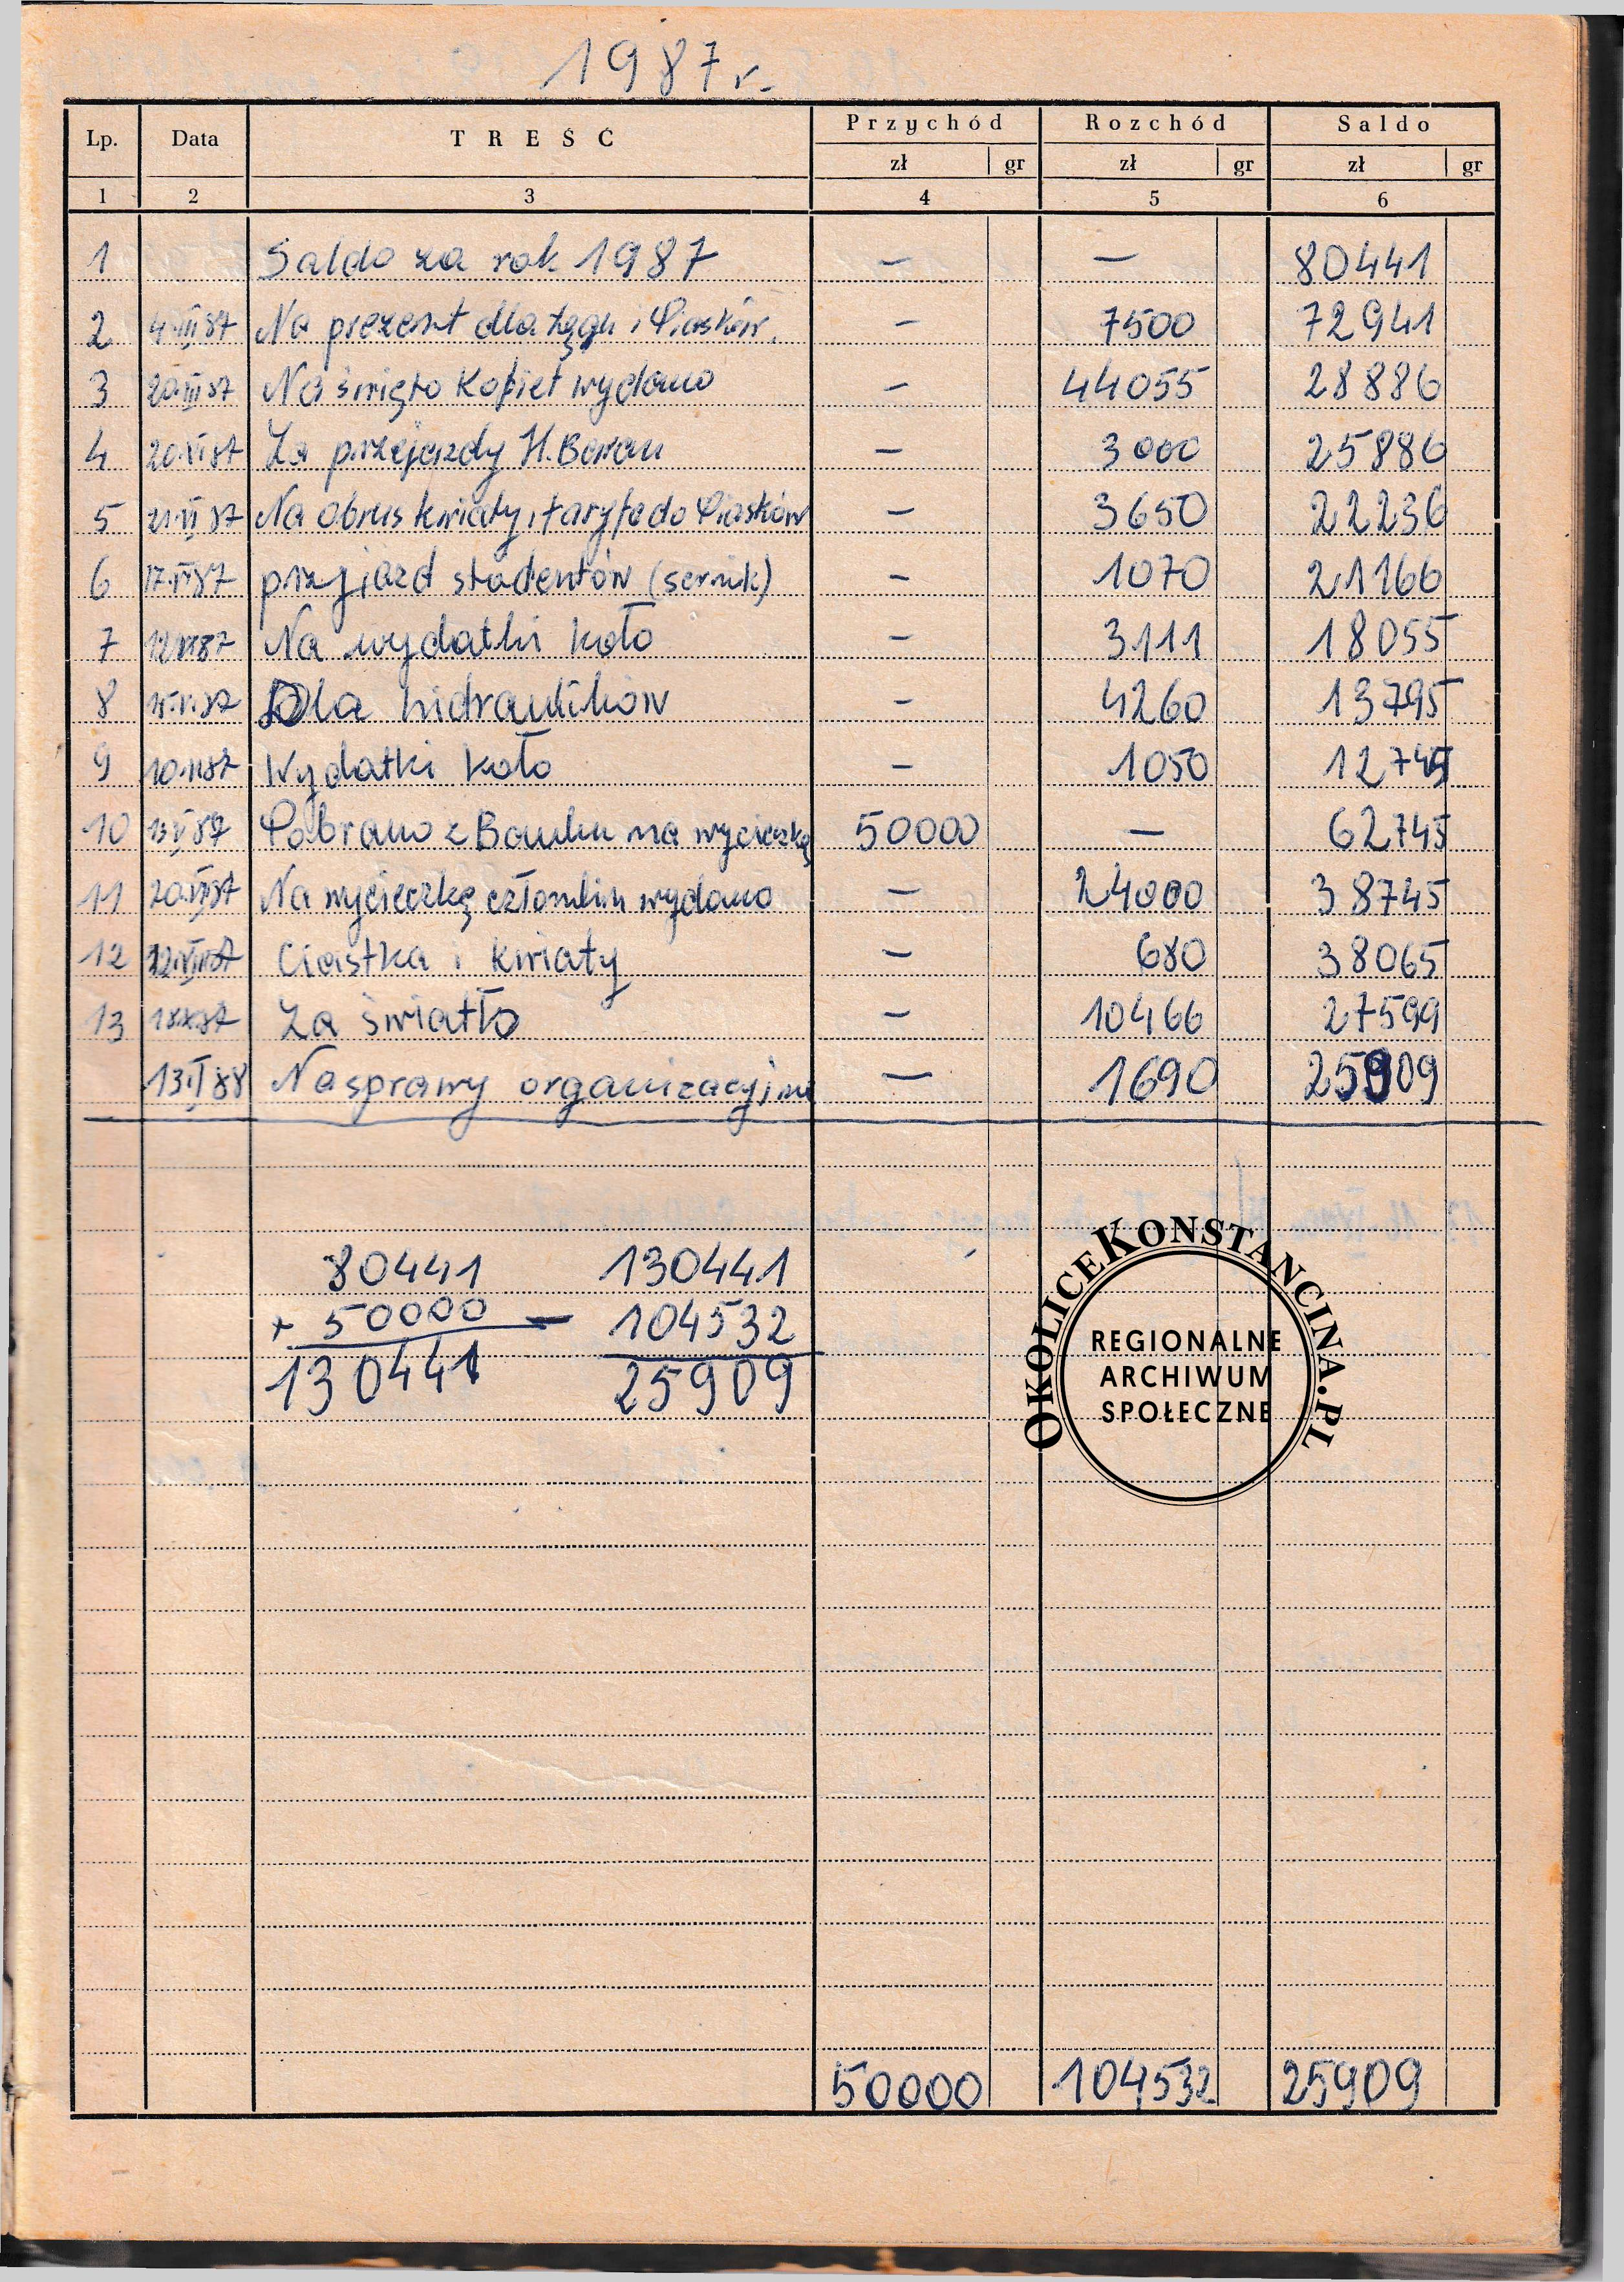 1987 r.
Lp. Data TREŚĆ Przychód Rozchód Saldo
zł gr zł gr zł gr
1 2 3 4 5 6
1 Saldo za rok 1987 — — 80441
2 4.III87 Na prezent dla Łęgu i Piasków. — 7500 72941
3 20.III87 Na święto Kobiet wydano — 44055 28886
4 20.VI87 Za przejazdy H. Baran — 3000 25886
5 21.VI87 Na obrus kwiaty i taryfe do Piasków — 3650 22236
6 przyjazd studentów (sernik) — 1070 21166
7 Na wydatki koło — 3111 18055
8 Dla hidraulików — 4260 13795
9 Wydatki koło — 1050 12745
10 Pobrano z Banku na wycieczkę 50000 — 62745
11 Na wycieczkę członkiń wydano — 24000 38745
12 Ciastka i kwiaty — 680 38065
13 Za światło — 10466 27599
13.I88 Na sprawy organizacyjne — 1690 25909
80441 130441
+ 50000 — 104532
130441 25909
OKOLICEKONSTANCINA.PL
REGIONALNE
ARCHIWUM
SPOŁECZNE
50000 104532 25909